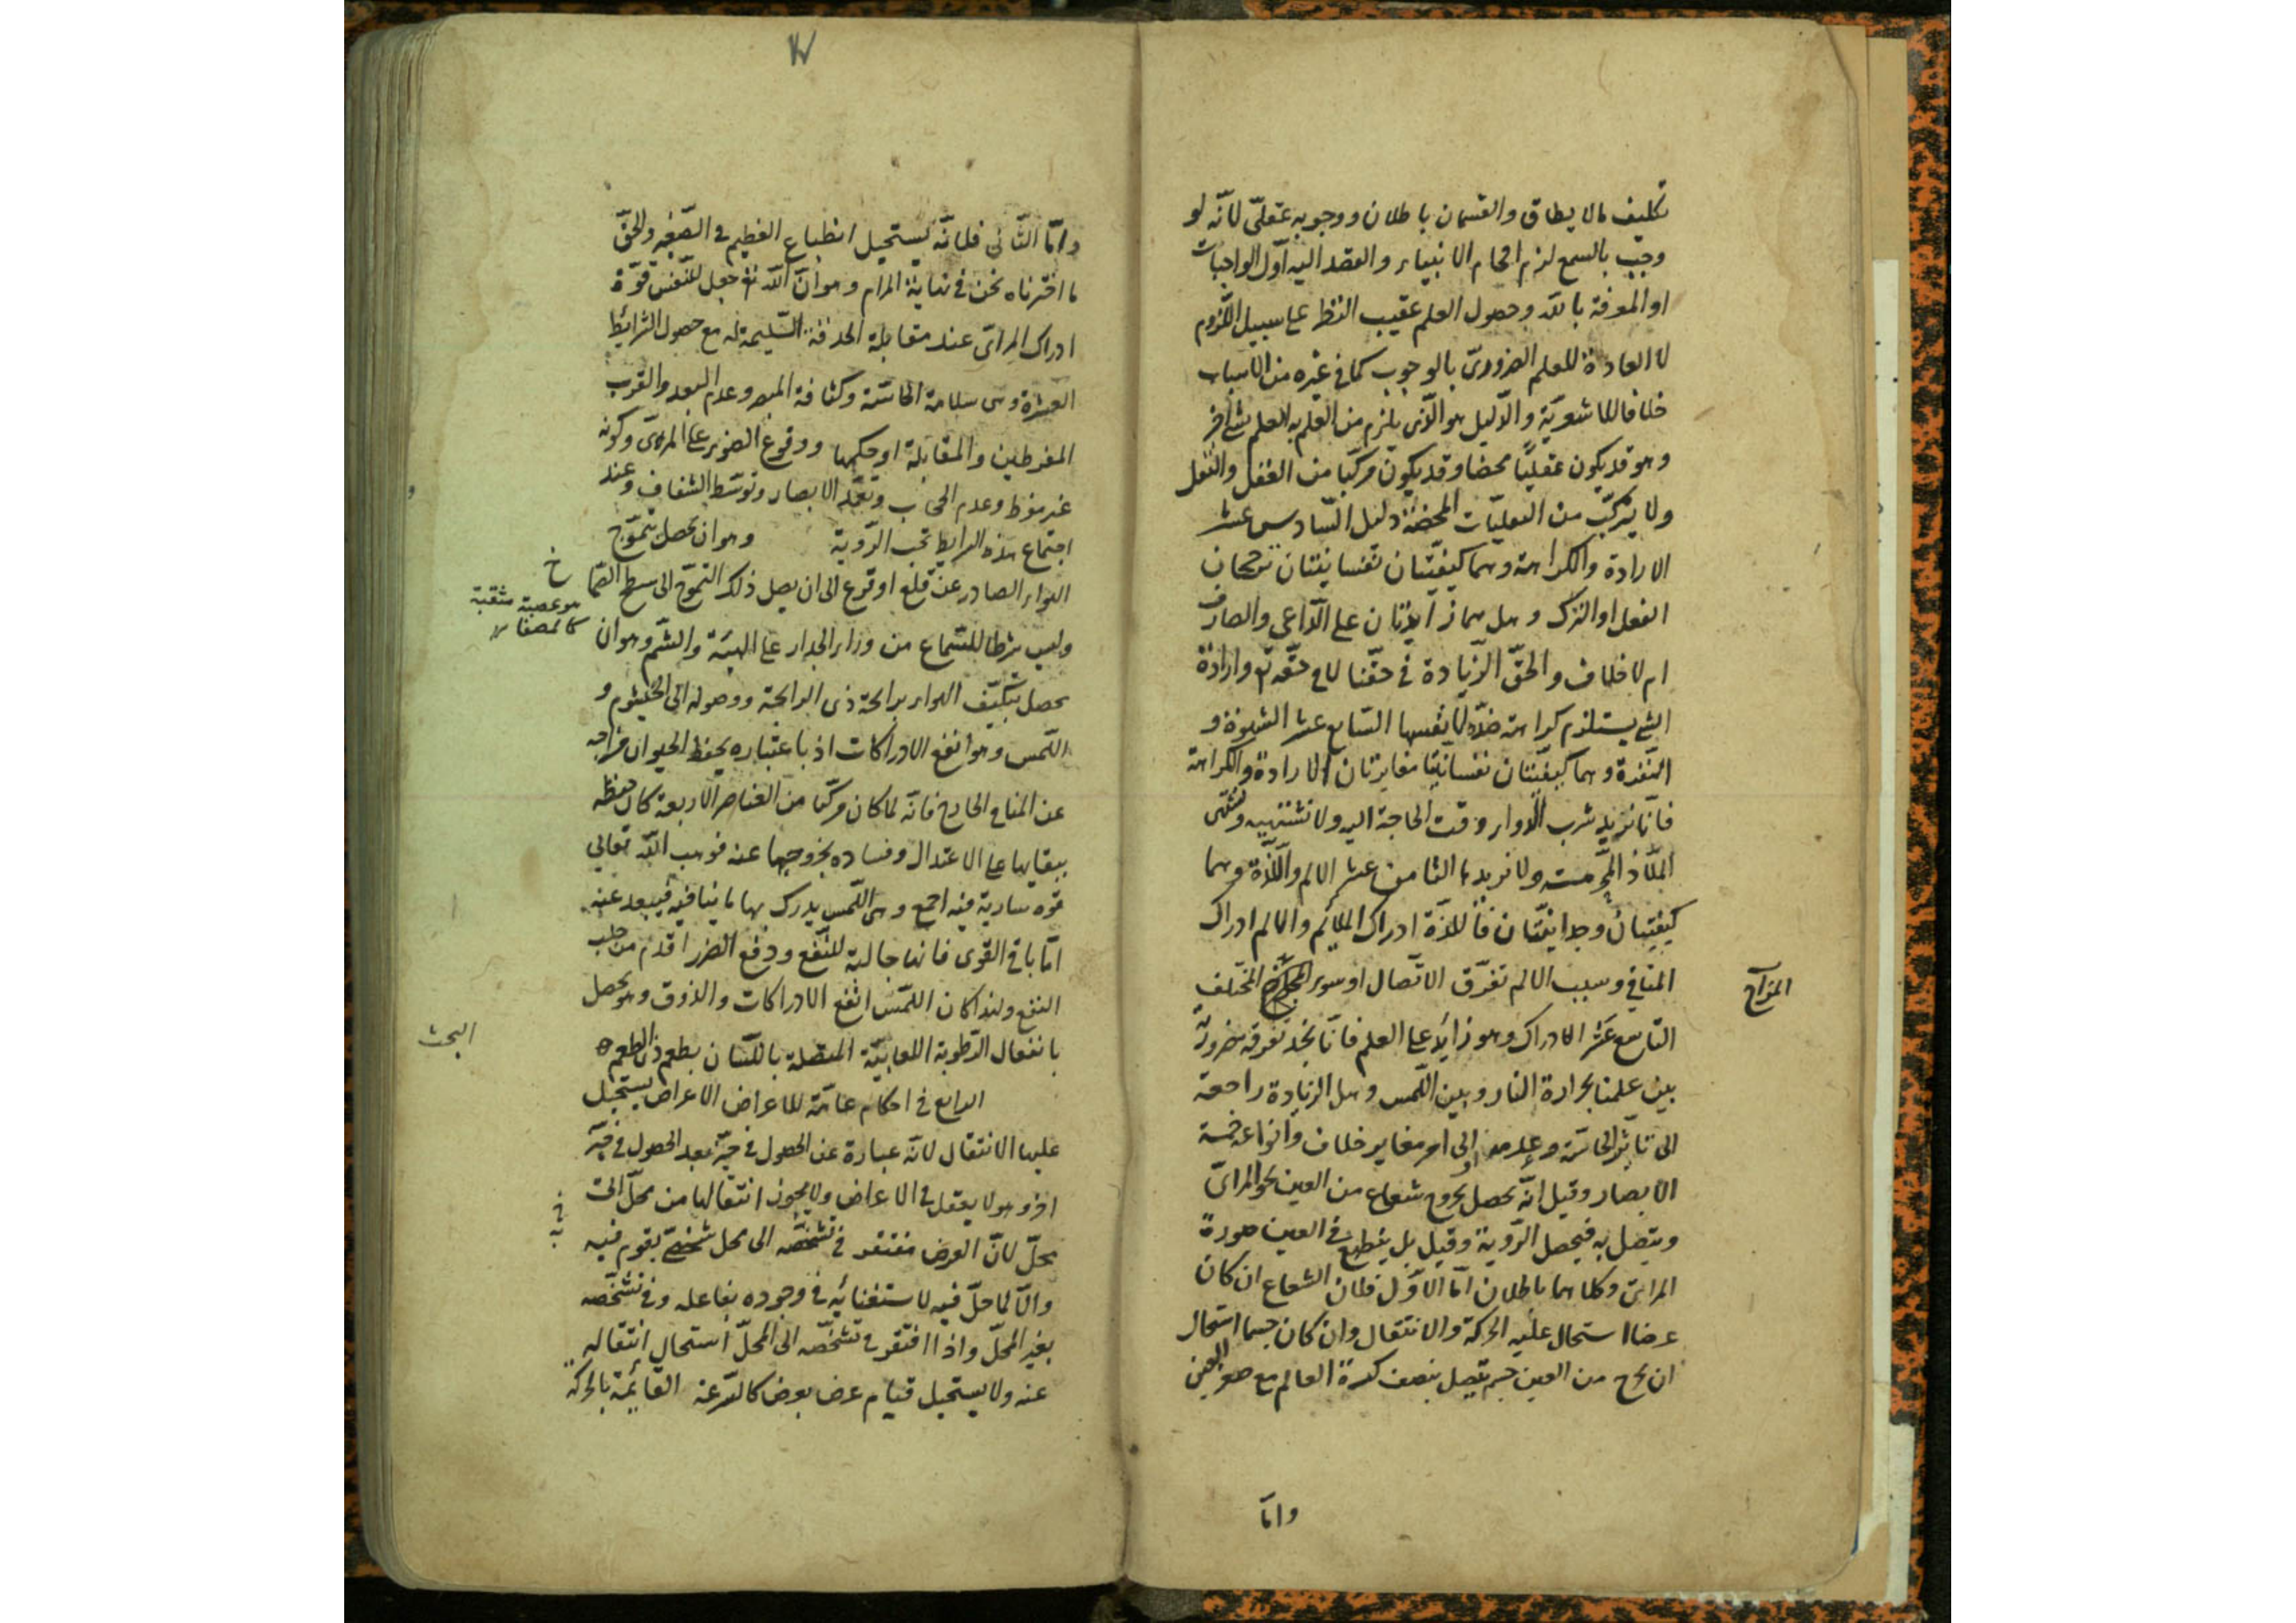 تكليف ما لا يطاق والقسمان باطلان ووجوبه عقلىّ لأنّه لو
وجب بالسمع لزم افحام الانبياء والقصد اليه اوّل الواجبات
او المعرفة بالله وحصول العلم عقيب النظر على سبيل اللّزوم
لا العادة للعلم الضرورىّ بالوجوب كما فى غيره من الاسباب
خلافا للاشعريّة والدّليل هو الّذى يلزم من العلم به العلم بشئ آخر
وهو قد يكون عقليّا محضا وقد يكون مركّبا من العقل والنقل
ولا يتركّب من النقليّات المحضة دليل السّادس عشر
الارادة والكراهة وهما كيفيّتان نفسانيّتان ترجحان
الفعل او الترك وهل هما زايدتان على الدّاعى والصارف
ام لا خلاف والحقّ الزّيادة فى حقّنا لا فى حقّه تع وارادة
الشئ يستلزم كراهة ضدّه لا نفسها السّابع عشر الشهوة و
النّفرة وهما كيفيّتان نفسانيّتان مغايرتان للارادة والكراهة
فانّا نريد شرب الدواء وقت الحاجة اليه ولا نشتهيه ونشتهى
الملاذّ المحرّمة ولا نريدها الثامن عشر الالم واللّذّة وهما
كيفيتان وجدانيّتان فاللذّة ادراك الملايم والالم ادراك
المنافى وسبب الالم تفرّق الاتّصال او سوء المزاج المختلف
المزاج
التّاسع عشر الادراك وهو زايد على العلم فانّا نجد تفرقة ضروريّة
بين علمنا بحرارة النار وبين اللّمس وهل الزيادة راجعة
الى تاثّر الحاسّة وعدمه او الى امر مغاير خلاف وانواعه خمسة
الابصار وقيل انّه يحصل بخروج شعاع من العين نحو المرائىّ
ويتّصل به فيحصل الرّوية وقيل بل ينطبع فى العين صورة
المرائى وكلاهما باطلان امّا الاوّل فلان الشعاع ان كان
عرضا استحال عليه الحركة والانتقال وان كان جسما استحال
ان يخرج من العين جسم يتّصل بنصف كرة العالم مع صغر العين
وامّا
وامّا الثّانى فلانّه يستحيل انطباع العظيم فى الصّغير والحقّ
ما اخترناه نحن فى نهاية المرام وهو انّ الله تع جعل للنّفس قوّة
ادراك المرائىّ عند مقابلة الحدقة السّليمة له مع حصول الشرائط
العشرة وهى سلامة الحاسّة وكثافة المبصر وعدم البعد والقرب
المفرطين والمقابلة او حكمها ووقوع الضوء على المرئىّ وكونه
غير مفرط وعدم الحجاب وتعمّد الابصار وتوسّط الشفاف وعند
اجتماع هذه الشرايط تجب الرّوية وهو ان يحصل بتموّج
الهواء الصادر عن قلع او قرع الى ان يصل ذلك التموّج الى سطح الصّماخ
هو عصبة مثقبة
وليس شرطا للسّماع من وراء الجدار على الهيئة والشّم وهو ان
يحصل بتكيّف الهواء برائحة ذى الرائحة ووصوله الى الخيشوم و
اللّمس وهو انفع الادراكات اذ باعتباره يحفظ الحيوان مزاجه
عن المنافى الخارج فانّه لما كان مركّبا من العناصر الاربعة كان حفظه
ببقايها على الاعتدال وفساده بخروجها عنه فوهب الله تعالى
قوة سارية فيه اجمع وهى اللّمس يدرك بها ما ينافيه فيبعد عنه
امّا باقى القوى فانها جالبة للنّفع ودفع الضرر اقدم من جلب
النفع ولهذا كان اللّمس انفع الادراكات والذوق وهو يحصل
بانفعال الرّطوبة اللعابيّة المتصلة باللّسان بطعم ذى الطعم
البحث
الرابع فى احكام عامّة للاعراض الاعراض يستحيل
عليها الانتقال لانّه عبارة عن الحصول فى حيّز بعد الحصول فى حيّز
اخر وهو لا يعقل فى الاعراض ولا يجوز انتقالها من محلّ الى
محلّ لانّ العرض مفتقر فى تشخّصه الى محل شخصىّ يقوم فيه
والّا لما حلّ فيه لاستغنائه فى وجوده بفاعله وفى تشخّصه
بغير المحلّ واذا افتقر فى تشخّصه الى المحلّ استحال انتقاله
عنه ولا يستحيل قيام عرض بعرض كالسّرعة القائمة بالحركة